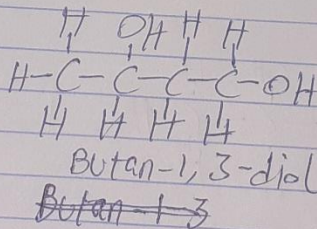 H OH H H
H-C-C-C-C-OH
H H H H
Butan-1,3-diol
Butan-1-3